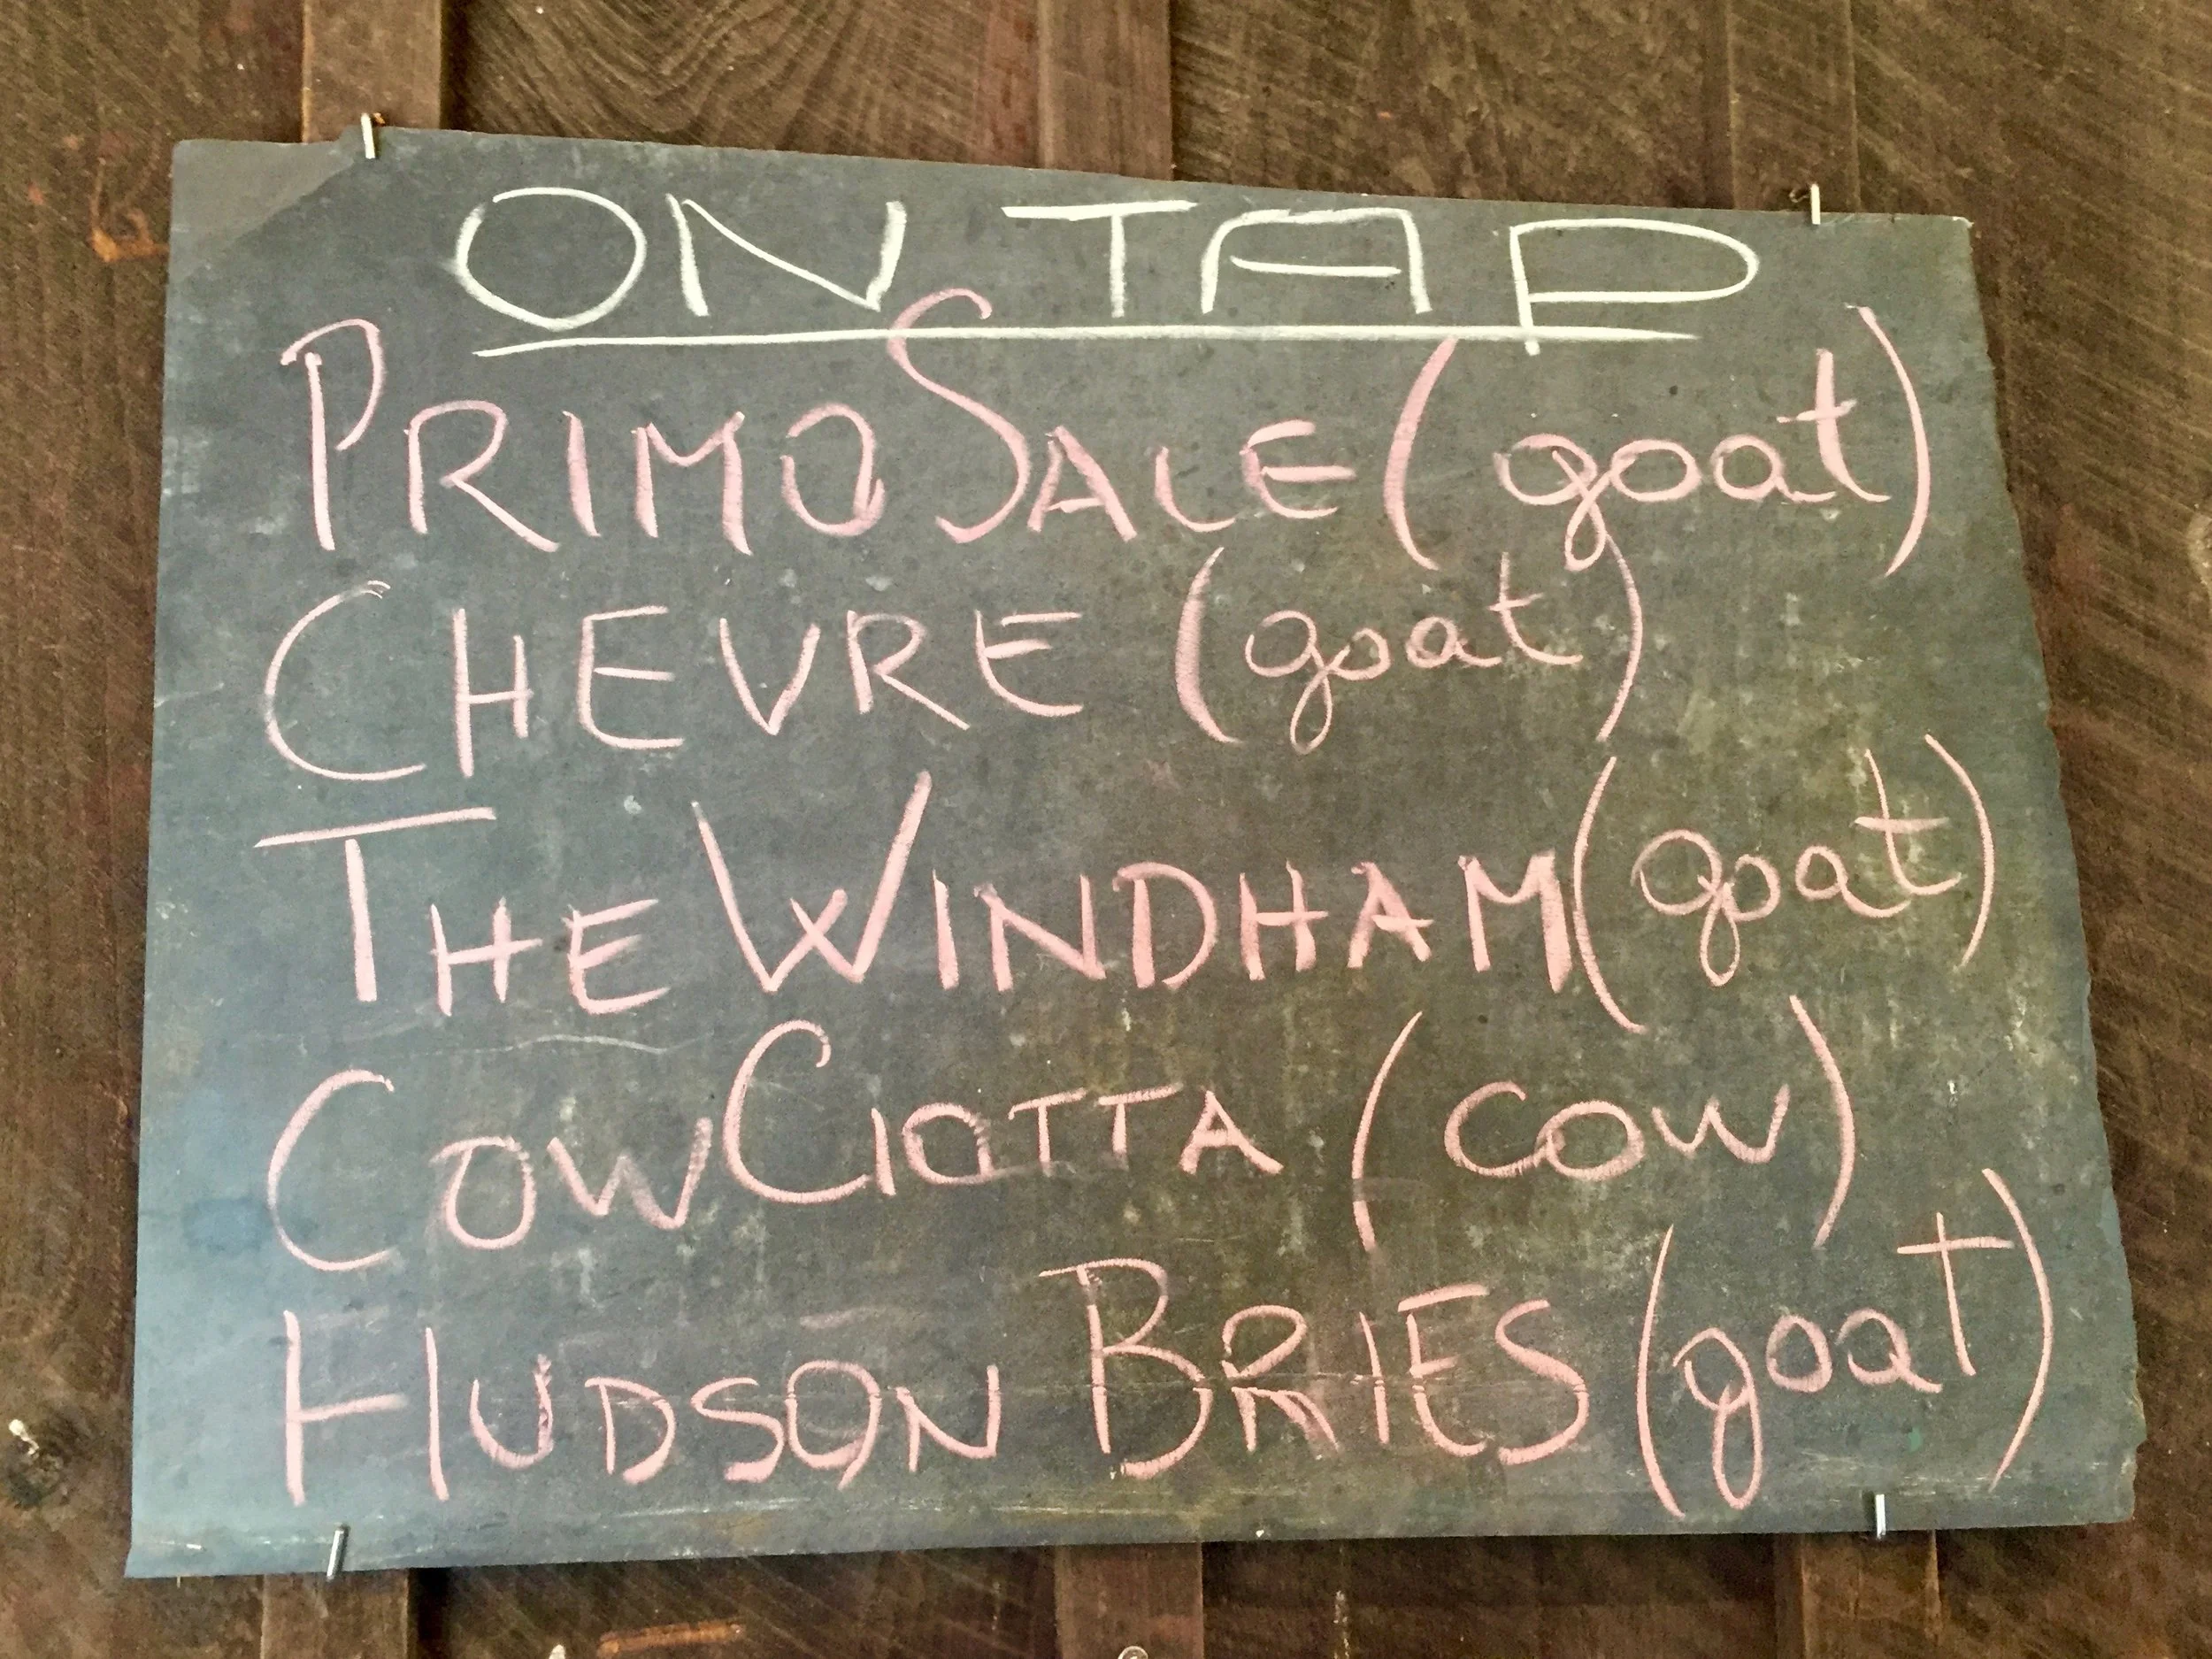 ON TAP
PRIMO SALE (goat)
CHEVRE (goat)
THE WINDHAM (goat)
COW CIOTTA (cow)
HUDSON BRIES (goat)